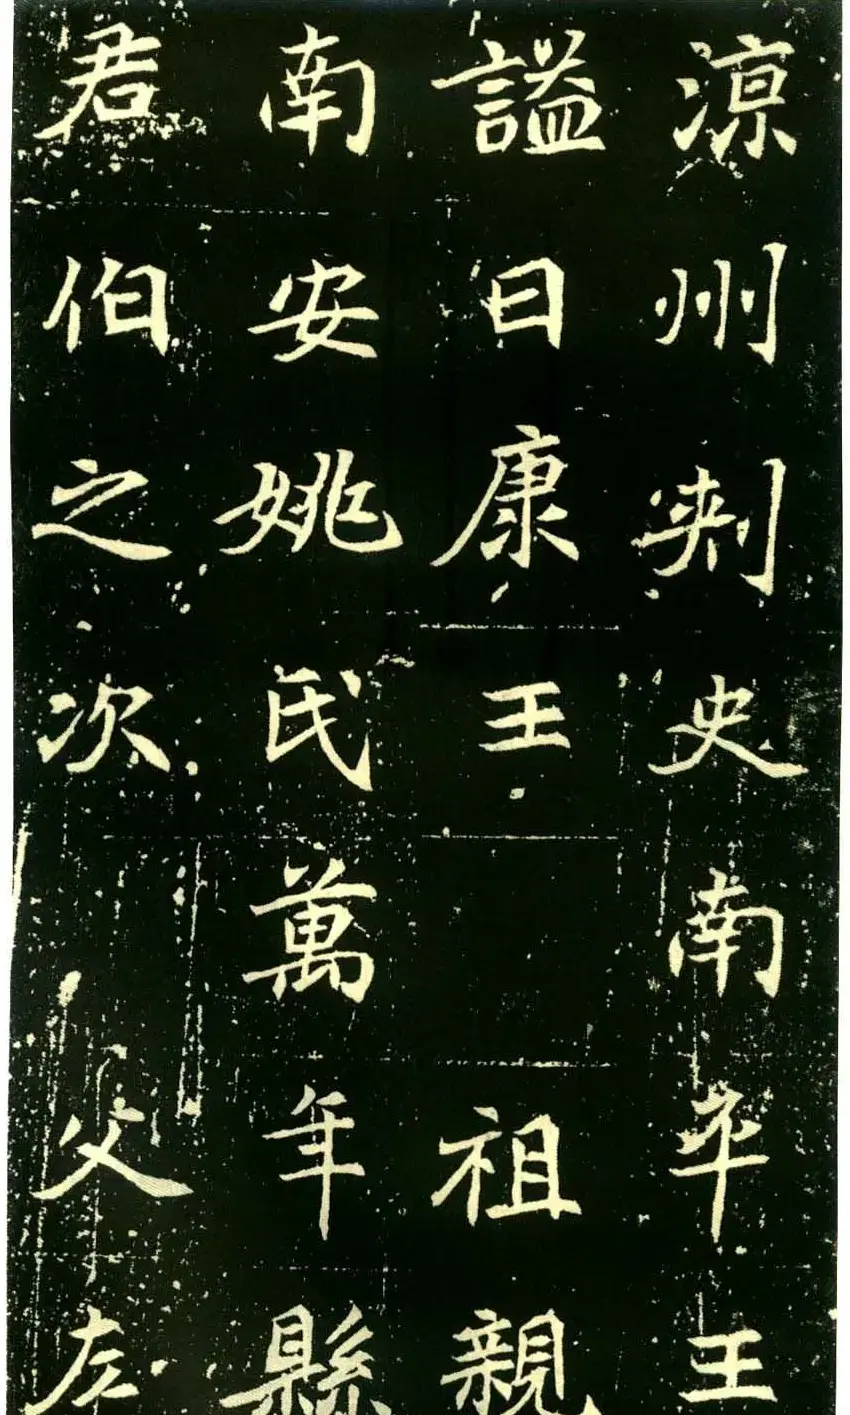 涼州刺史南平王
謚曰康王祖親
南安姚氏萬年縣
君伯之次父左